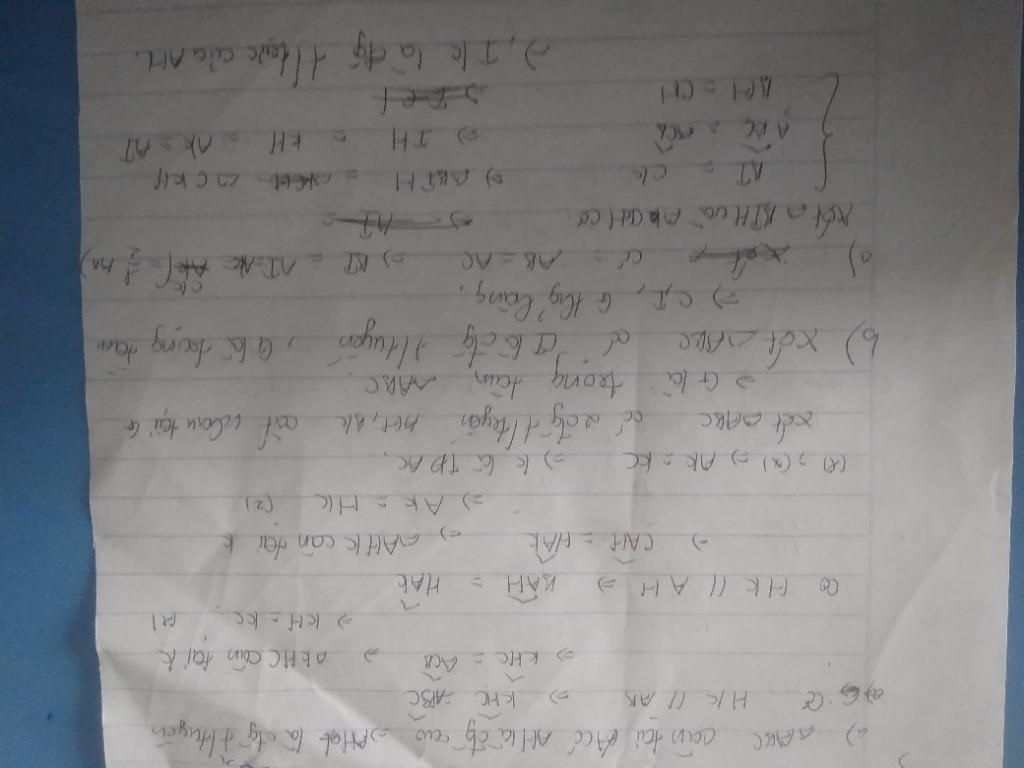 a) △ABC cân tại A có AH là đg cao ⇒ AH là đg t/tuyến
HK // AB ⇒ KHC = ABC
⇒ KHC = ACB ⇒ △KHC cân tại K
⇒ KH = KC (1)
Có HK // AH ⇒ BAH = HAK
⇒ CAH = HAK ⇒ △AHK cân tại K
⇒ AK = HK (2)
(1), (2) ⇒ AK = KC ⇒ K là TĐ AC.
Xét △ABC có 2 đg t/tuyến AH, BK cắt nhau tại G
⇒ G là trọng tâm △ABC
b) Xét △ABC có CI là đg t/tuyến, G là trọng tâm
⇒ C, I, G thg hàng.
c) Xét có AB = AC ⇒ BI = AI = AK = CK (= 1/2 AB)
Xét △BIH và △KCH có. ⇒ AI =
BI = CK ⇒ △BIH = △CKH
ABC = ACB ⇒ IH = KH = AK = AI
BH = CH
⇒ IK là đg t/trực của AH.